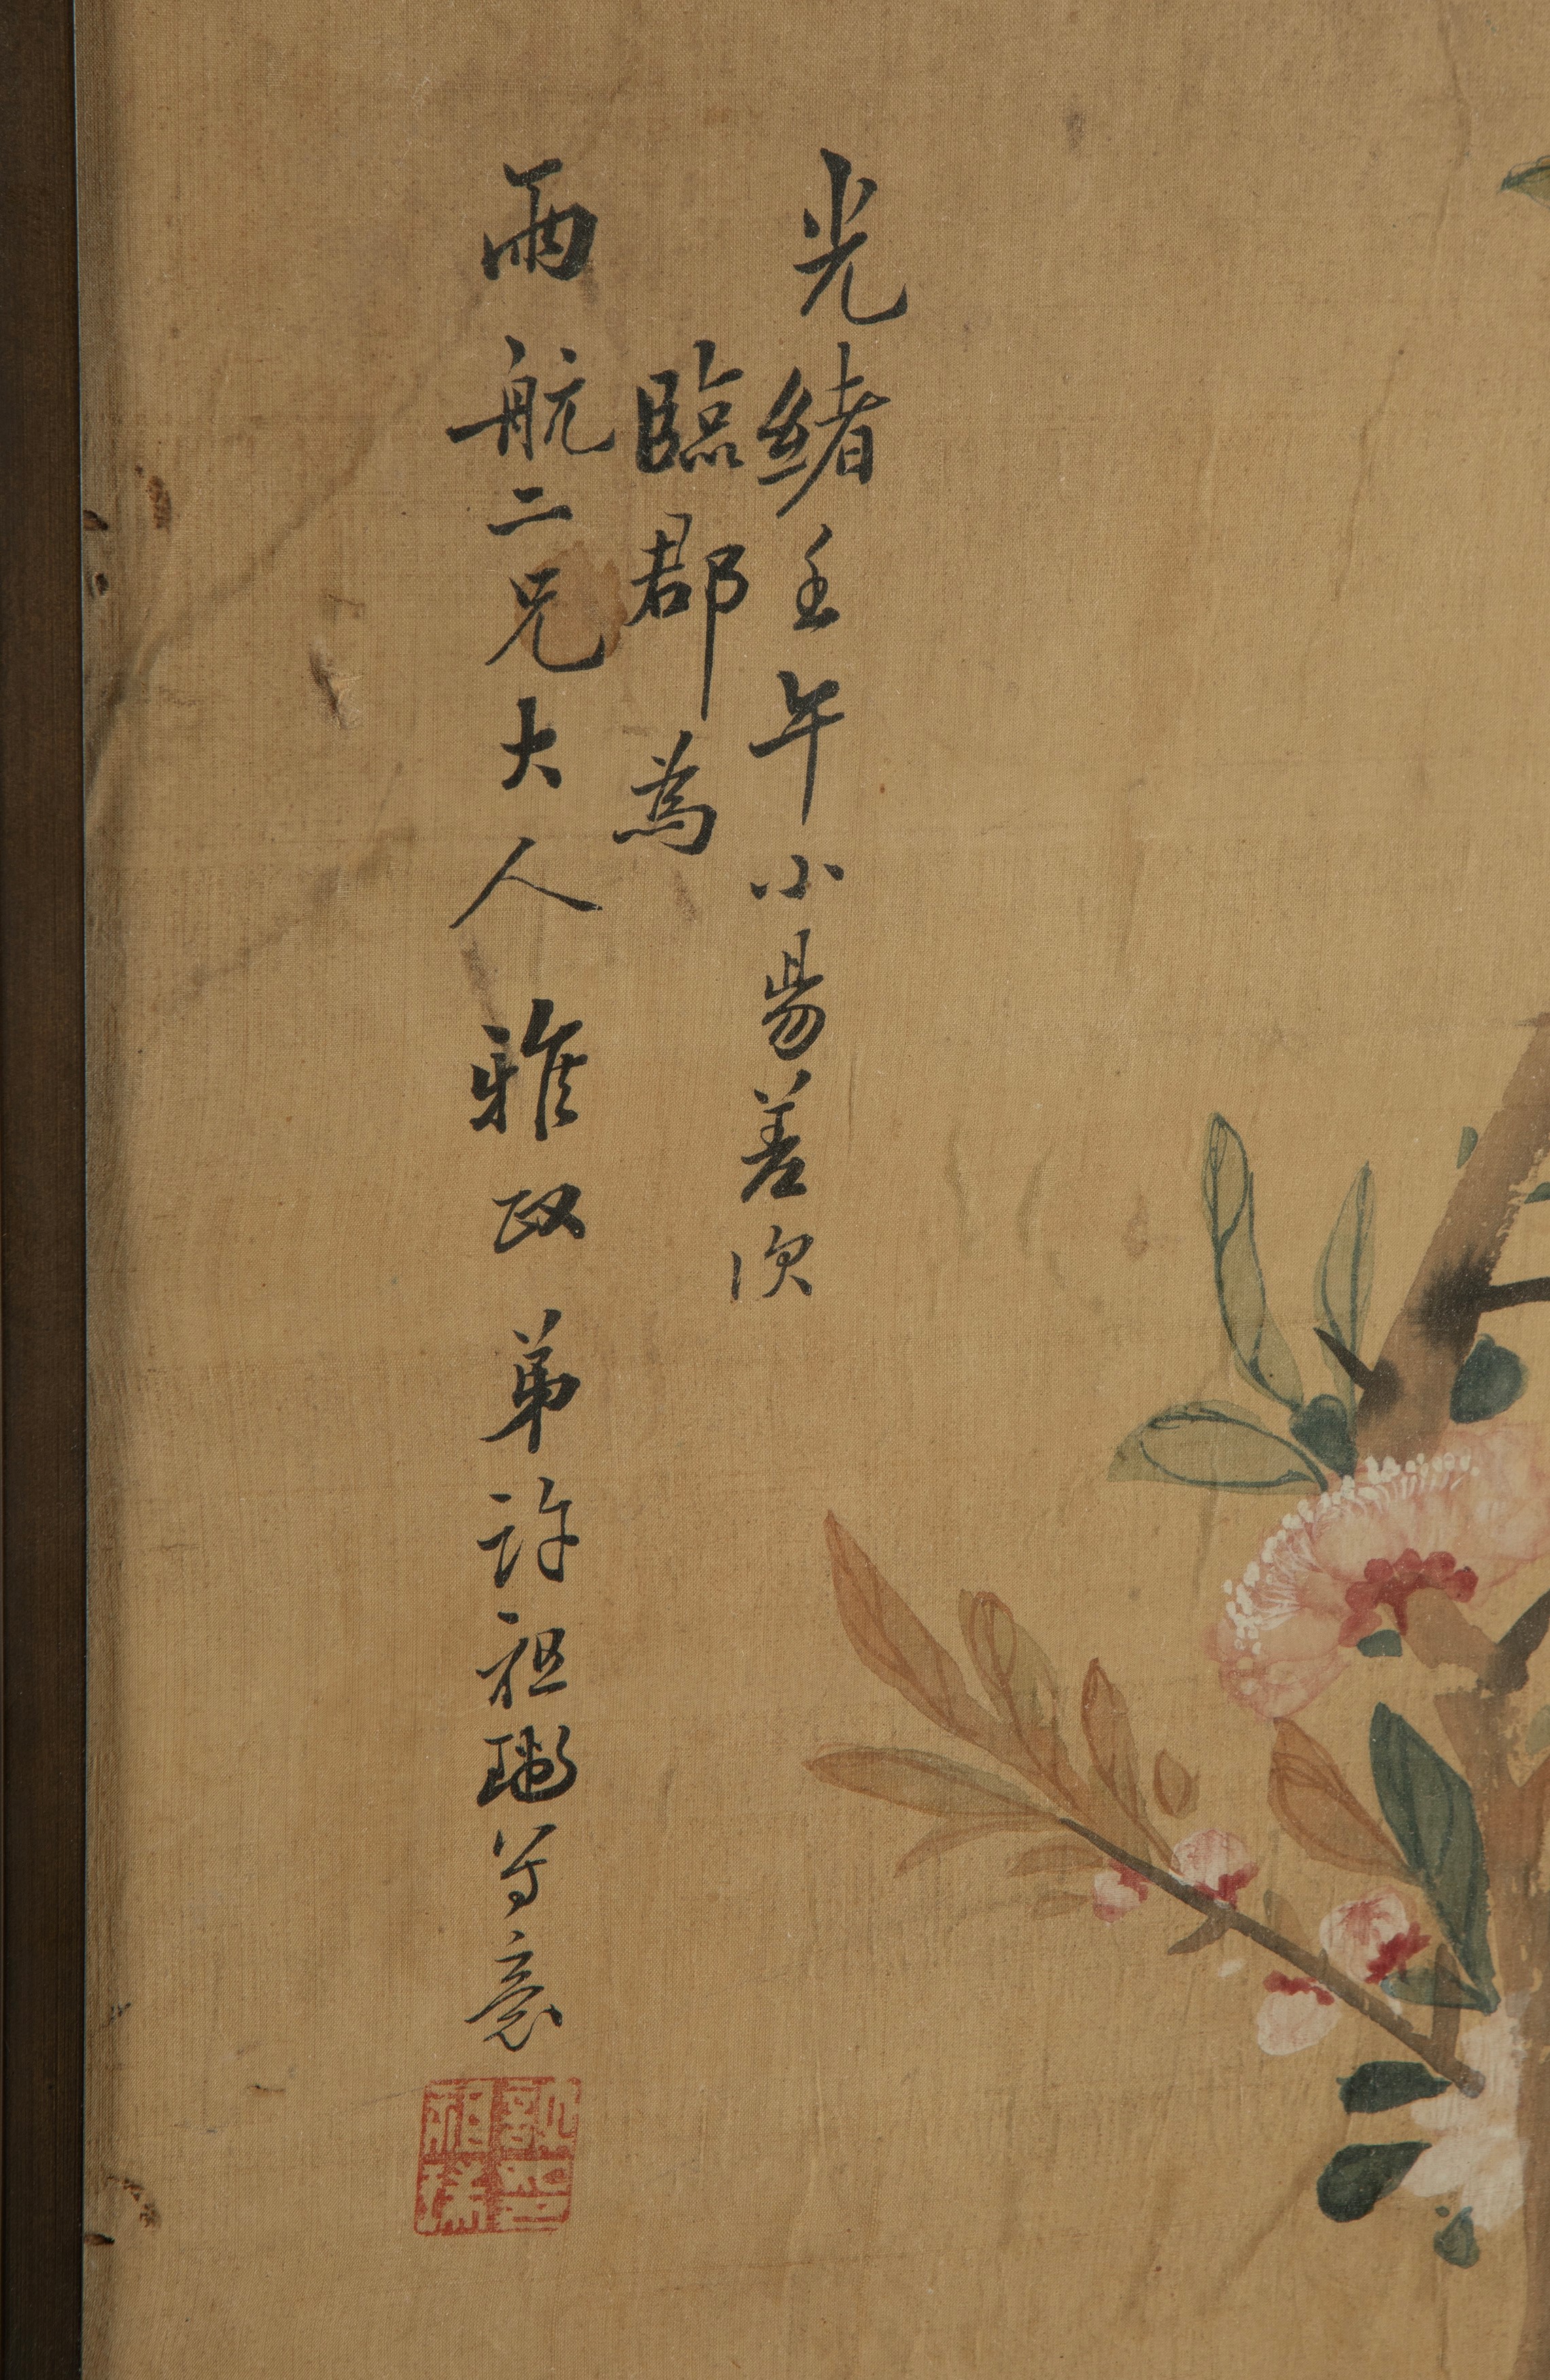 光緒壬午小昜差次
臨郡為
雨航二兄大人雅政弟許祖寫意
許印
祖